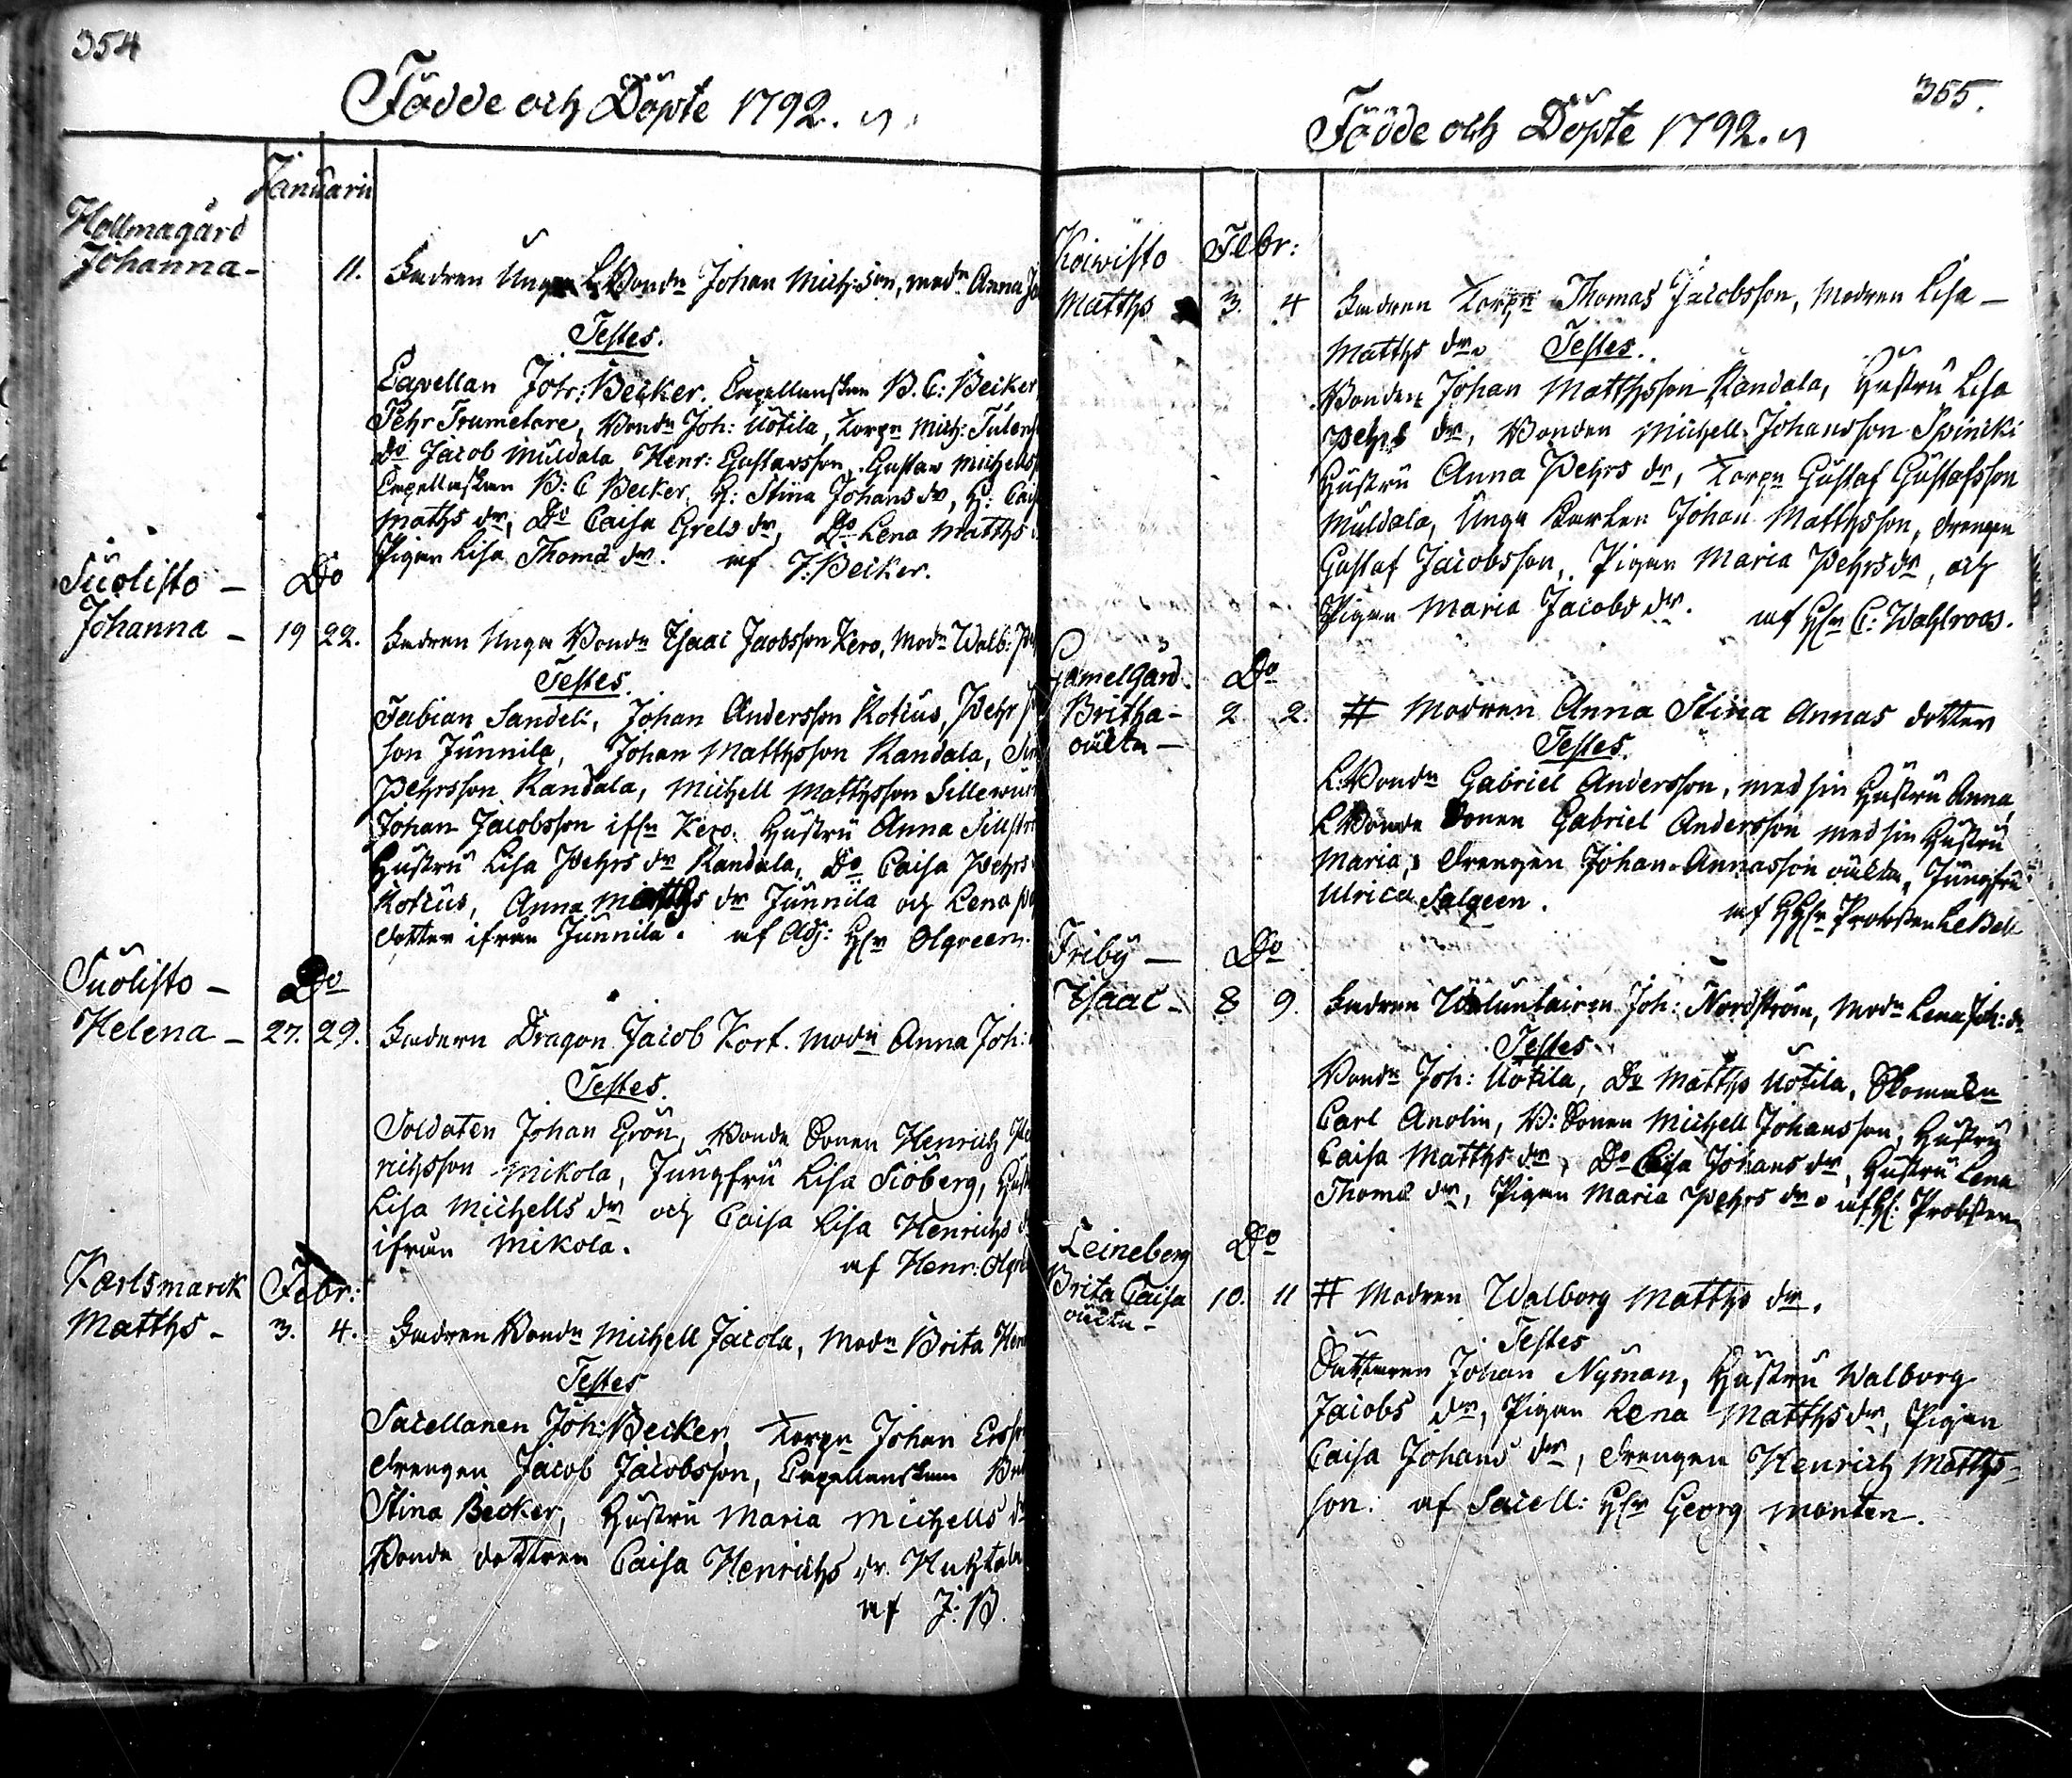 354
Födde och Döpte 1792.
Januarii
Hollmagård
Johanna - 11. Fadren Unga L. Bondn Johan Mich:Son, modn Anna
Testes.
Capellan Joh: Becker. Capellanskan B. C: Becker
Pehr Trumetare, Bondn Joh: Uotila, Torpn Mich:
Do Jacob Muldala Henr: Gustavsson, Gustav Michells
Capellanskan B: C Becker, H: Stina Johans dr, H:
Matts dr, Do Caisa Grels dr, Do Lena Matths
Pigan Lisa Thoma dr. af J: Becker.
Suolisto - Do
Johanna - 19 22. Fadren Unga Bondn Isaac Jacobsson Kero, Modn Walb:
Testes.
Fabian Sandeli, Johan Andersson Kotius, Pehr
son Junnila, Johan Matthsson Randala,
Pehrsson Randala, Michell Matthsson
Johan Jacobsson ifrn Kero. Hustru Anna
Hustru Lisa Pehrs dr Randala, Do Caisa Pehrs
Kotius, Anna Matths dr Junnila och Lena
dotter ifrån Junnila. af Adj: Hr Olgreen.
Suolisto - Do
Helena - 27. 29. Fadern Dragon Jacob Kort. Modn Anna Joh:
Testes.
Soldaten Johan Grön, Bonde Sonen Henrich
richsson Mikola, Jungfru Lisa Siöberg,
Lisa Michells dr och Caisa Lisa Henrichs
ifrån Mikola.
af Henr:
Karlsmarck Febr:
Matths - 3. 4. Fadren Bondn Michell Jacola, Modn Brita
Testes
Sacellanen Joh: Becker, Torpn Johan
drengen Jacob Jacobsson, Capellanskan
Stina Becker, Hustru Maria Michells dr
Bonde dottren Caisa Henrichs dr
af J: B.
355.
Födde och Döpte 1792.
Koivisto Febr:
Matths 3. 4 Fadren Torpn Thomas Jacobsson, Modren Lisa -
Matths dr. Testes.
Bonden Johan Matthsson Randala, Hustru Lisa
Pehrs dr, Bonden Michell Johansson
Hustru Anna Pehrs dr, Torpn Gustaf Gustafsson
Muldala, Unga Karlen Johan Matthsson, drengen
Gustaf Jacobsson, Pigan Maria Pehrs dr, och
Pigan Maria Jacobs dr. af Hr C: Wahlroos.
Gamelgård Do
Britha - 2 2. # Modren Anna Stina Annas dotter
oäkta - Testes.
L. Bondn Gabriel Andersson, med sin Hustru Anna,
L. Bonde Sonen Gabriel Andersson med sin Hustru
Maria, drengen Johan Annasson oäkta, Jungfru
Ulrica Salgeen. af Hr Probsten LeBell
Friby - Do
Isaac - 8 9. Fadren Voluntairen Joh: Nordström, Modn Lena Joh: dr
Testes
Bondn Joh: Uotila, Do Matths Uotila,
Carl Anolin, B: Sonen Michell Johansson, Hustru
Caisa Matths dr, Do Caisa Johans dr, Hustru Lena
Thoma dr, Pigan Maria Pehrs dr. af H: Probsten
Leineberg Do
Brita Caisa 10. 11 # Modren Walborg Matths dr.
oäkta - Testes
Johan Nyman, Hustru Walborg
Jacobs dr, Pigan Lena Matths dr, Pigan
Caisa Johans dr, drengen Henrich Matths-
son. af Sacell: Hr Georg Monten.